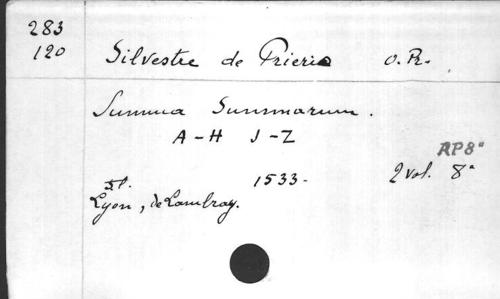 283
120 Silvestre de Prierio O.Pr.
Summa Summarum.
A-H J-Z
AP8°
1533- 2 vol. 8°
Lyon, de Cambray.